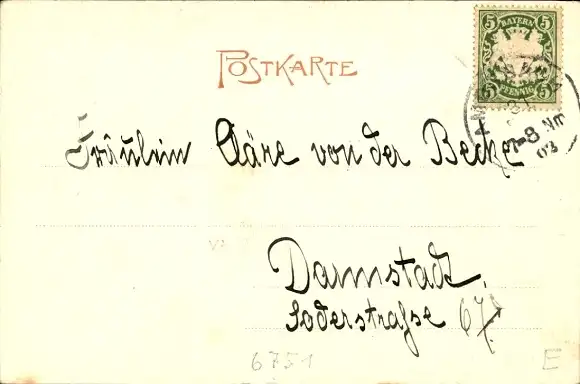 POSTKARTE
5 BAYERN 5
5 PFENNIG 5
7-8 Nm
03
Fräulein Cläre von der Becke
Darmstadt.
Soderstraße 67
6751
E